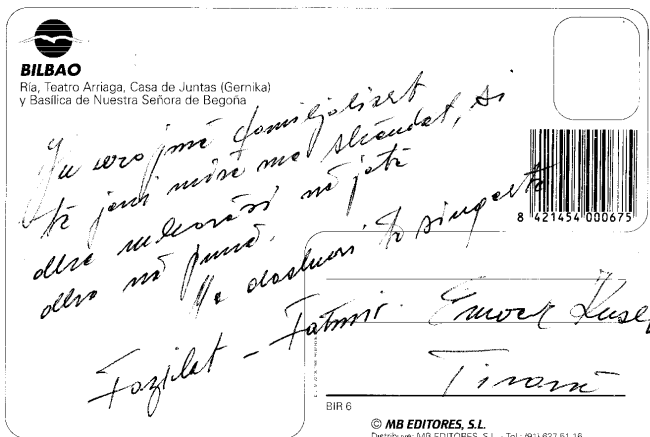 BILBAO
Ría, Teatro Arriaga, Casa de Juntas (Gernika)
y Basílica de Nuestra Señora de Begoña
Ju uroj me familjarisht
të jeni mirë me shëndet, si
dhe suksese në jetë
dhe në punë.
Me dashuri të singertë
Fazilet – Fatmir.
Tiranë
8 421454 000675
BIR 6
© MB EDITORES, S.L.
Distribuye: MB EDITORES, S.L. - Tel.: (91) 637 51 16